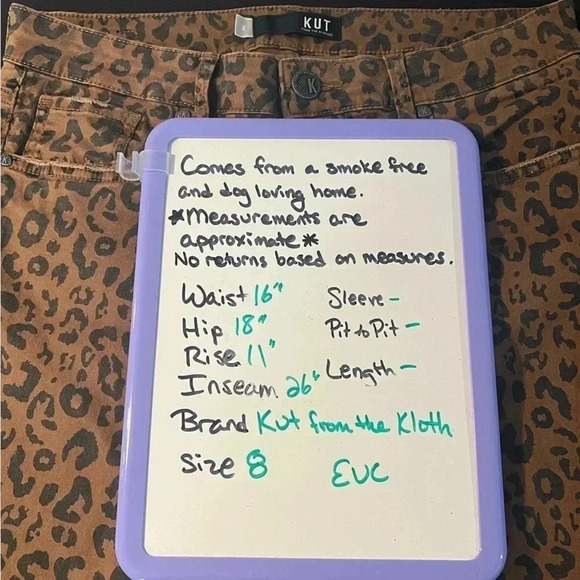 KUT
K
Comes from a smoke free
and dog loving home.
*Measurements are
approximate*
No returns based on measures.
Waist 16"
Hip 18"
Rise 11"
Inseam 26"
Sleeve -
Pit to Pit -
Length -
Brand Kut from the Kloth
Size 8
EUC